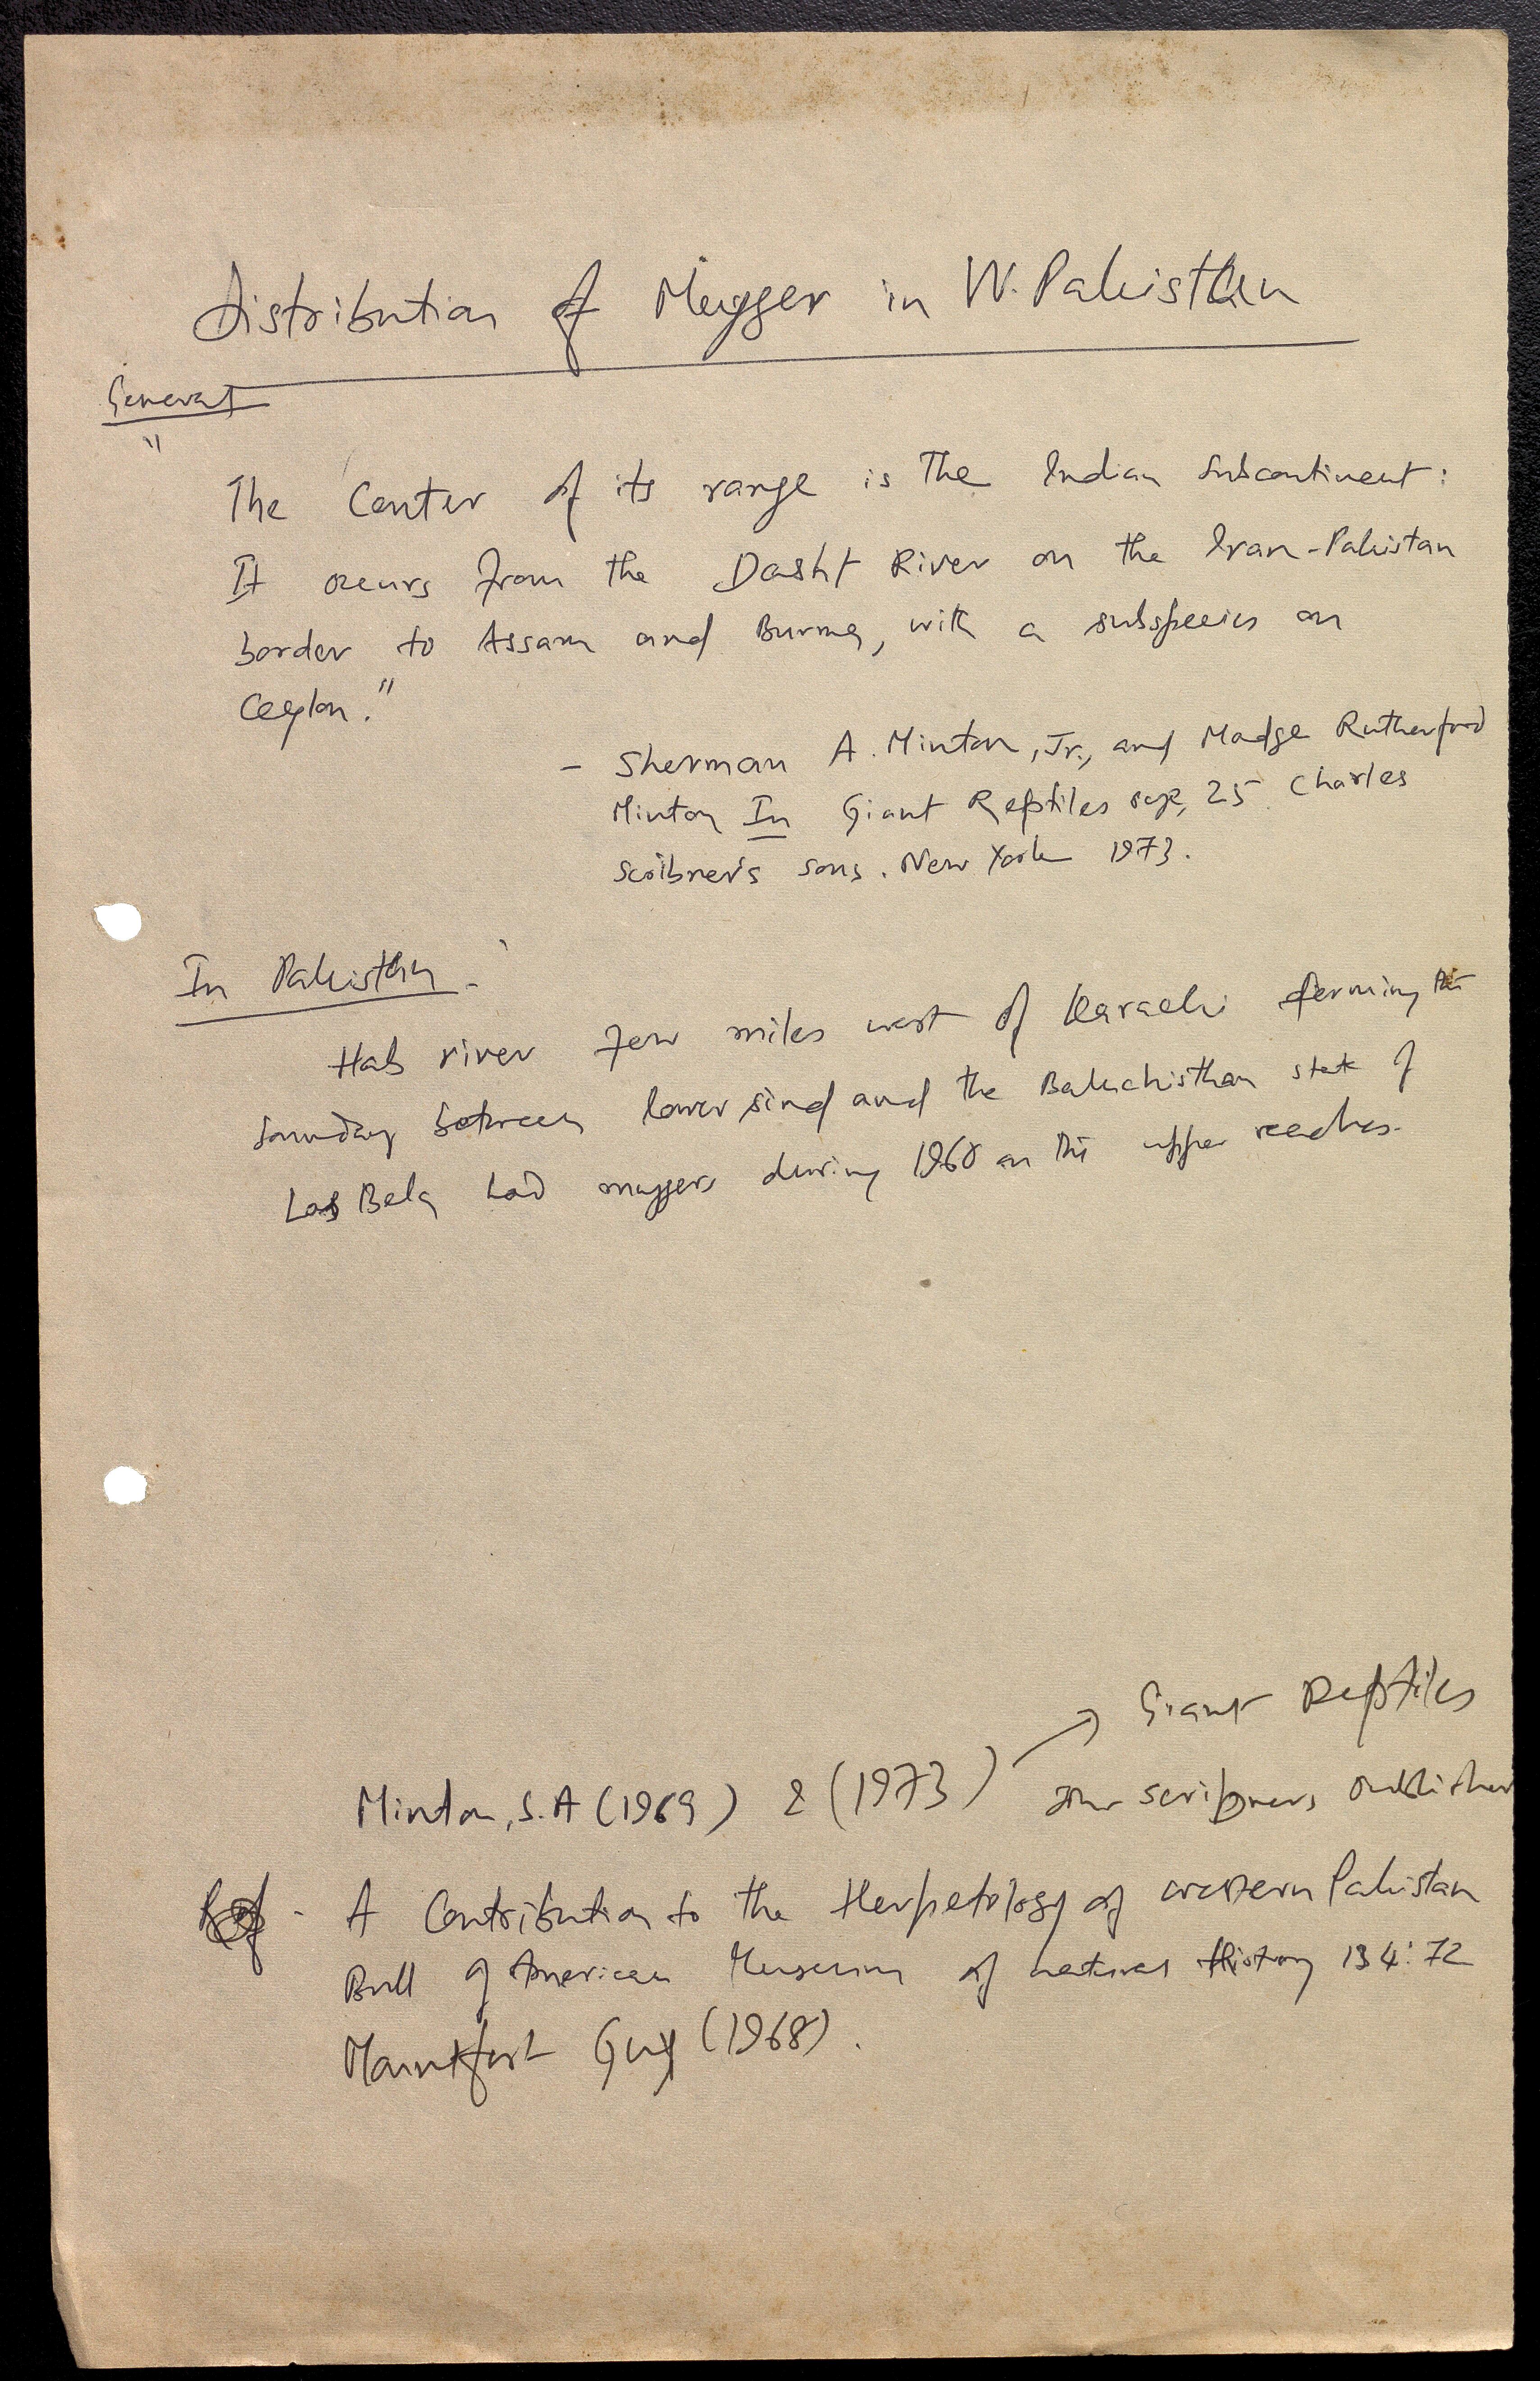 Distribution of Mugger in W. Pakisthan
General
"
The Center of its range is The Indian Subcontinent:
It occurs from the Dasht River on the Iran-Pakistan
border to Assam and Burma, with a subspecies on
Ceylon."
- Sherman A. Minton, Jr., and Madge Rutherford
Minton In Giant Reptiles 25 Charles
Scribner's sons. New York 1973.
In Pakisthan -
Hab river few miles west of Karachi forming the
boundary between lower sind and the Baluchisthan state of
Las Bela had muggers during 1968 on the upper reaches.
Giant Reptiles
Minton, S.A (1969) & (1973) scribners publisher
Ref - A Contribution to the Herpetology of western Pakistan
Bull of American Museum of natural History 134:72
Mountfort Guy (1968).